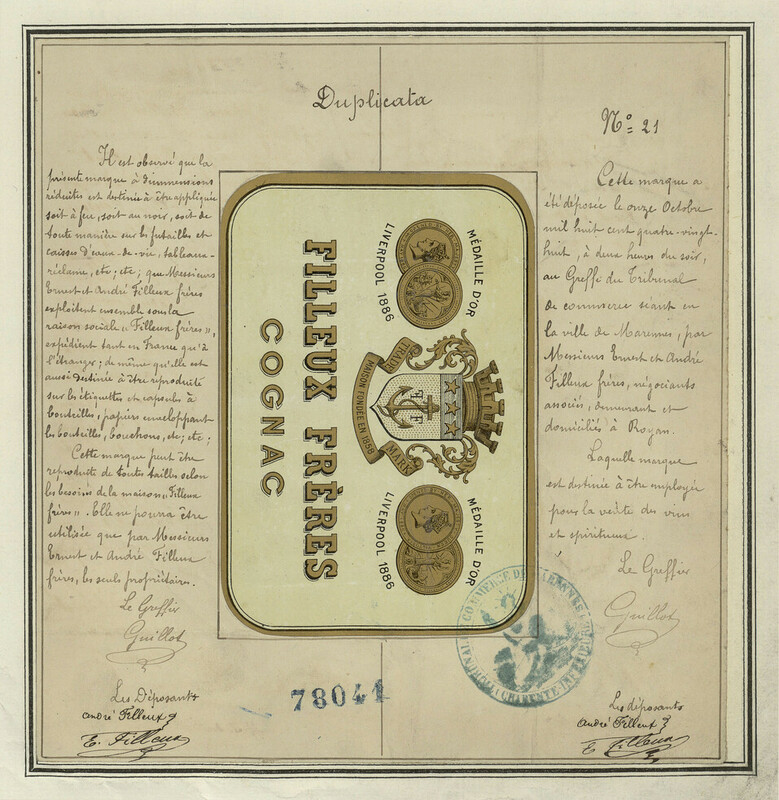 Duplicata
N° 21
Il est observé que la
présente marque à dimmensions
réduites est destinée à être appliquée
soit à feu, soit au noir, soit de
toute manière sur les futailles et
caisses d'eaux-de-vie, tableaux-
réclame, etc; etc; que Messieurs
Ernest et André Filleux frères
exploitent ensemble sous la
raison sociale "Filleux frères",
expédient tant en France qu'à
l'étranger; de même qu'elle est
aussi destinée à être reproduite
sur les étiquettes et capsules à
bouteilles, papiers enveloppant
les bouteilles, bouchons, etc; etc;
Cette marque peut être
reproduite de toutes tailles selon
les besoins de la maison "Filleux
frères". Elle ne pourra être
utilisée que par Messieurs
Ernest et André Filleux
frères, les seuls propriétaires.
Le Greffier
Guillot
Les Déposants
André Filleux
E. Filleux
MÉDAILLE D'OR
LIVERPOOL 1886
TRADE
MARK
MAISON FONDÉE EN 1858
F F
MÉDAILLE D'OR
LIVERPOOL 1886
FILLEUX FRÈRES
COGNAC
Cette marque a
été déposée le onze Octobre
mil huit cent quatre-vingt-
huit, à deux heures du soir,
au Greffe du Tribunal
de commerce séant en
la ville de Marennes, par
Messieurs Ernest et André
Filleux frères, négociants
associés, demeurant et
domiciliés à Royan.
Laquelle marque
est destinée à être employée
pour la vente des vins
et spiritueux.
Le Greffier
Guillot
TRIBUNAL DE COMMERCE DE MARENNES
CHARENTE INFRE
78041
Les déposants
André Filleux
E Filleux